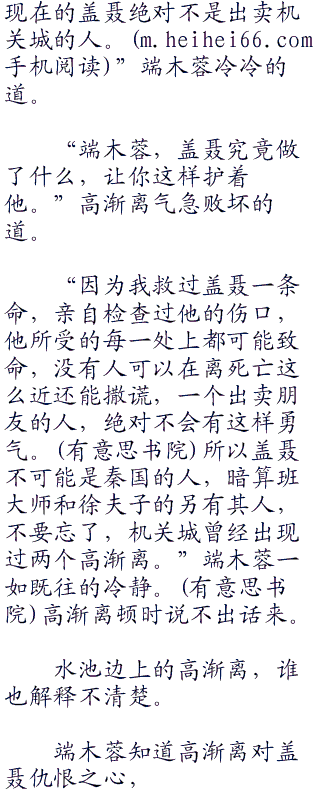 现在的盖聂绝对不是出卖机
关城的人。(m.heihei66.com
手机阅读)”端木蓉冷冷的
道。
“端木蓉，盖聂究竟做
了什么，让你这样护着
他。”高渐离气急败坏的
道。
“因为我救过盖聂一条
命，亲自检查过他的伤口，
他所受的每一处上都可能致
命，没有人可以在离死亡这
么近还能撒谎，一个出卖朋
友的人，绝对不会有这样勇
气。(有意思书院)所以盖聂
不可能是秦国的人，暗算班
大师和徐夫子的另有其人，
不要忘了，机关城曾经出现
过两个高渐离。”端木蓉一
如既往的冷静。(有意思书
院)高渐离顿时说不出话来。
水池边上的高渐离，谁
也解释不清楚。
端木蓉知道高渐离对盖
聂仇恨之心，